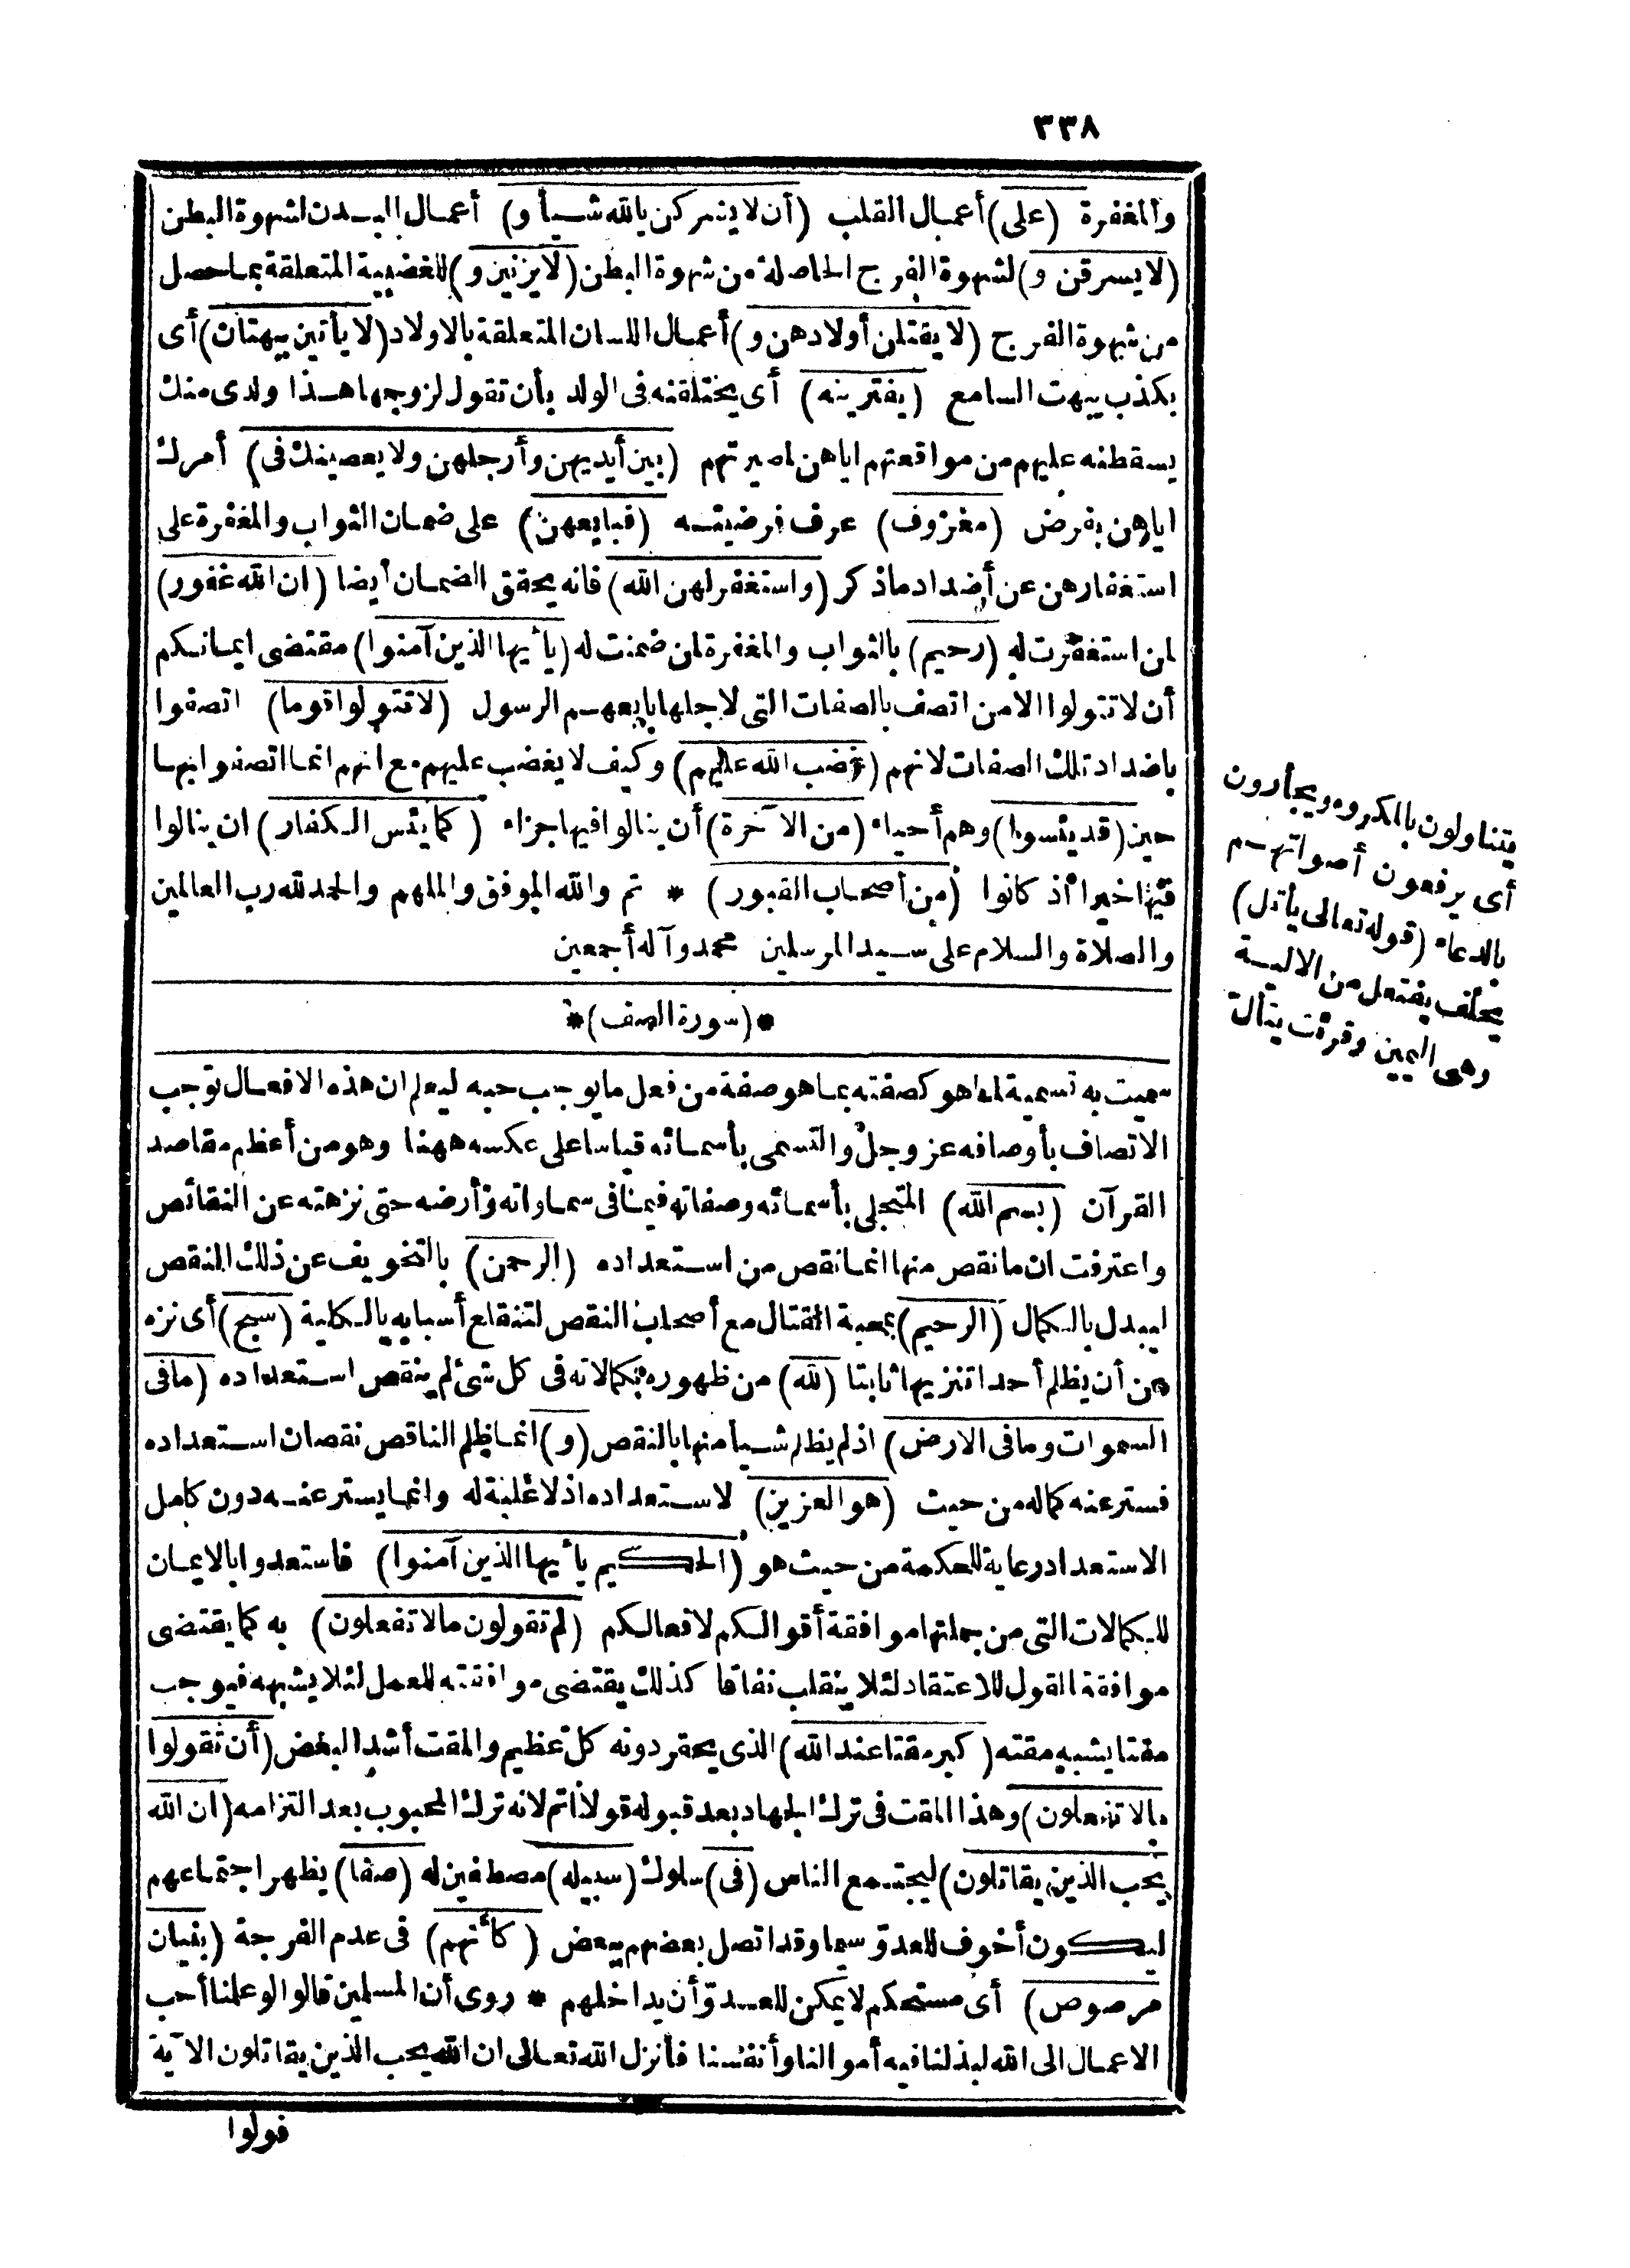 ٣٣٨
والمغفرة (على) أعمال القلب (أن لا يشركن بالله شيأ و) أعمال البدن لشهوة البطن
(لا يسرقن و) لشهوة الفرج الحاصلة من شهوة البطن (لا يزنين و) للغضبية المتعلقة بما حصل
من شهوة الفرج (لا يقتلن أولادهن و) أعمال اللسان المتعلقة بالاولاد (لا يأتين ببهتان) أى
بكذب يبهت السامع (يفترينه) أى يختلقنه فى الولد بأن تقول لزوجها هذا ولدى منك
يسقطنه عليهم من مواقعتهم اياهن لصيرتهم (بين أيديهن وأرجلهن ولا يعصينك فى) أمرك
اياهن بفرض (معروف) عرف فرضيته (فبايعهن) على ضمان الثواب والمغفرة على
استغفارهن عن أضداد ما ذكر (واستغفر لهن الله) فانه يحقق الضمان أيضا (ان الله غفور)
لمن استغفرت له (رحيم) بالثواب والمغفرة لمن ضمنت له (يا أيها الذين آمنوا) مقتضى ايمانكم
أن لا تتولوا الا من اتصف بالصفات التى لاجلها بايعهم الرسول (لا تتولوا قوما) اتصفوا
باضداد تلك الصفات لانهم (غضب الله عليهم) وكيف لا يغضب عليهم مع انهم انما اتصفوا بها
حين (قد يئسوا) وهم أحياء (من الآخرة) أن ينالوا فيها جزاء (كما يئس الكفار) ان ينالوا
فيها خيرا اذ كانوا (من أصحاب القبور) * تم والله الموفق والملهم والحمد لله رب العالمين
والصلاة والسلام على سيد المرسلين محمد وآله أجمعين
*(سورة الصف)*
سميت به تسمية لما هو كصفته بما هو صفة من فعل ما يوجب حبه ليعلم ان هذه الافعال توجب
الاتصاف بأوصافه عز وجل والتسمى بأسمائه قياسا على عكسه ههنا وهو من أعظم مقاصد
القرآن (بسم الله) المتجلى بأسمائه وصفاته فيما فى سماواته وأرضه حتى نزهته عن النقائص
واعترفت ان ما نقص منها انما نقص من استعداده (الرحمن) بالتخويف عن ذلك النقص
ليبدل بالكمال (الرحيم) بمحبة القتال مع أصحاب النقص لتنقلع أسبابه بالكلية (سبح) أى نزه
عن أن يظلم أحدا تنزيها ثابتا (لله) من ظهوره بكمالاته فى كل شئ لم ينقص استعداده (ما فى
السموات وما فى الارض) اذ لم يظلم شيأ منها بالنقص (و) انما ظلم الناقص نقصان استعداده
فستر عنه كماله من حيث (هو العزيز) لاستعداده اذ لا غلبة له وانما يستر عنه دون كامل
الاستعداد رعاية للحكمة من حيث هو (الحكيم يا أيها الذين آمنوا) فاستعدوا بالايمان
للكمالات التى من جملتها موافقة أقوالكم لافعالكم (لم تقولون ما لا تفعلون) به كما يقتضى
موافقة القول للاعتقاد لئلا ينقلب نفاقا كذلك يقتضى موافقته للعمل لئلا يشبهه فيوجب
مقتا يشبه مقته (كبر مقتا عند الله) الذى يحقر دونه كل عظيم والمقت أشد البغض (أن تقولوا
ما لا تفعلون) وهذا المقت فى ترك الجهاد بعد قبوله قولا أتم لانه ترك المحبوب بعد التزامه (ان الله
يحب الذين يقاتلون) ليجتمع الناس (فى) سلوك (سبيله) مصطفين له (صفا) يظهر اجتماعهم
ليكون أخوف للعدو سيما وقد اتصل بعضهم ببعض (كأنهم) فى عدم الفرجة (بنيان
مرصوص) أى مستحكم لا يمكن للعدو أن يداخلهم * روى أن المسلمين قالوا لو علمنا أحب
الاعمال الى الله لبذلنا فيه أموالنا وأنفسنا فأنزل الله تعالى ان الله يحب الذين يقاتلون الآية
فولوا
يتناولون بالمكروه ويجأرون
أى يرفعون أصواتهم
بالدعاء (قوله تعالى يأتل)
يحلف يفتعل من الالية
وهى اليمين وقرئت يتأل